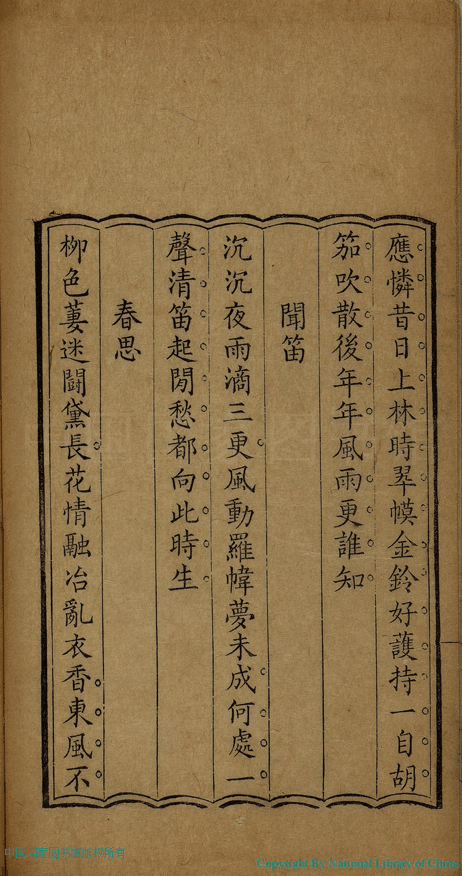 應憐昔日上林時翠幙金鈴好護持一自胡
笳吹散後年年風雨更誰知
聞笛
沉沉夜雨滴三更風動羅幃夢未成何處一
聲清笛起閒愁都向此時生
春思
柳色萋迷鬪黛長花情融冶亂衣香東風不
Copyright By National Library of China